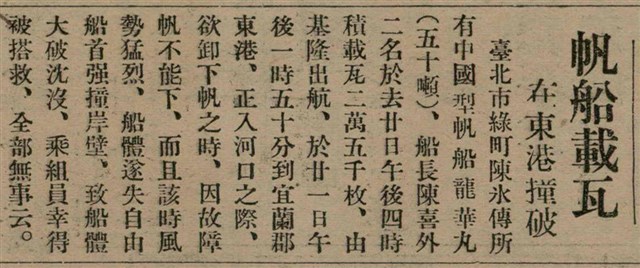 帆船載瓦
在東港撞破
臺北市綠町陳氷傳所
有中國型帆船龍華丸
(五十噸)、船長陳喜外
二名於去廿日午後四時
積載瓦二萬五千枚、由
基隆出航、於廿一日午
後一時五十分到宜蘭郡
東港、正入河口之際、
欲卸下帆之時、因故障
帆不能下、而且該時風
勢猛烈、船體遂失自由
船首强撞岸壁、致船體
大破沈沒、乘組員幸得
被搭救、全部無事云。